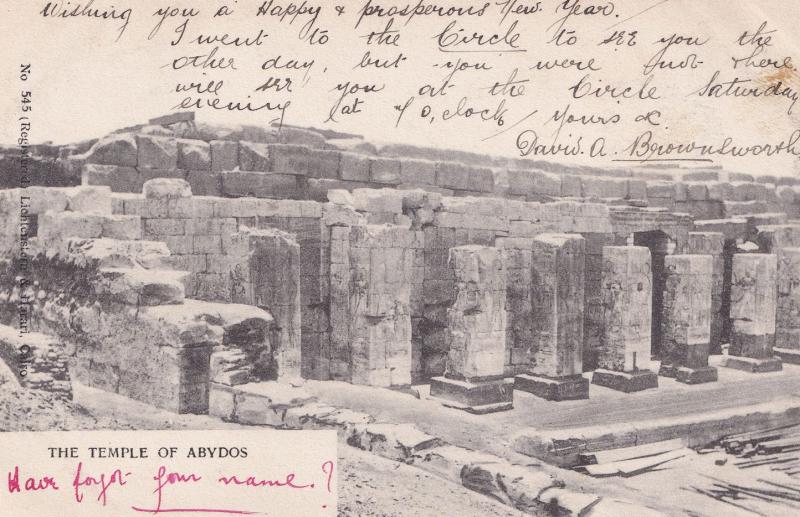 Wishing you a Happy & prosperous New Year.
I went to the Circle to see you the
other day, but you were not there
will see you at the Circle Saturday
evening (at 7 O,clock) Yours &c.
David. A. Brownsworth
No 545 (Registered) Lichtenstern & Harari, Cairo
THE TEMPLE OF ABYDOS
Have forgot your name.?